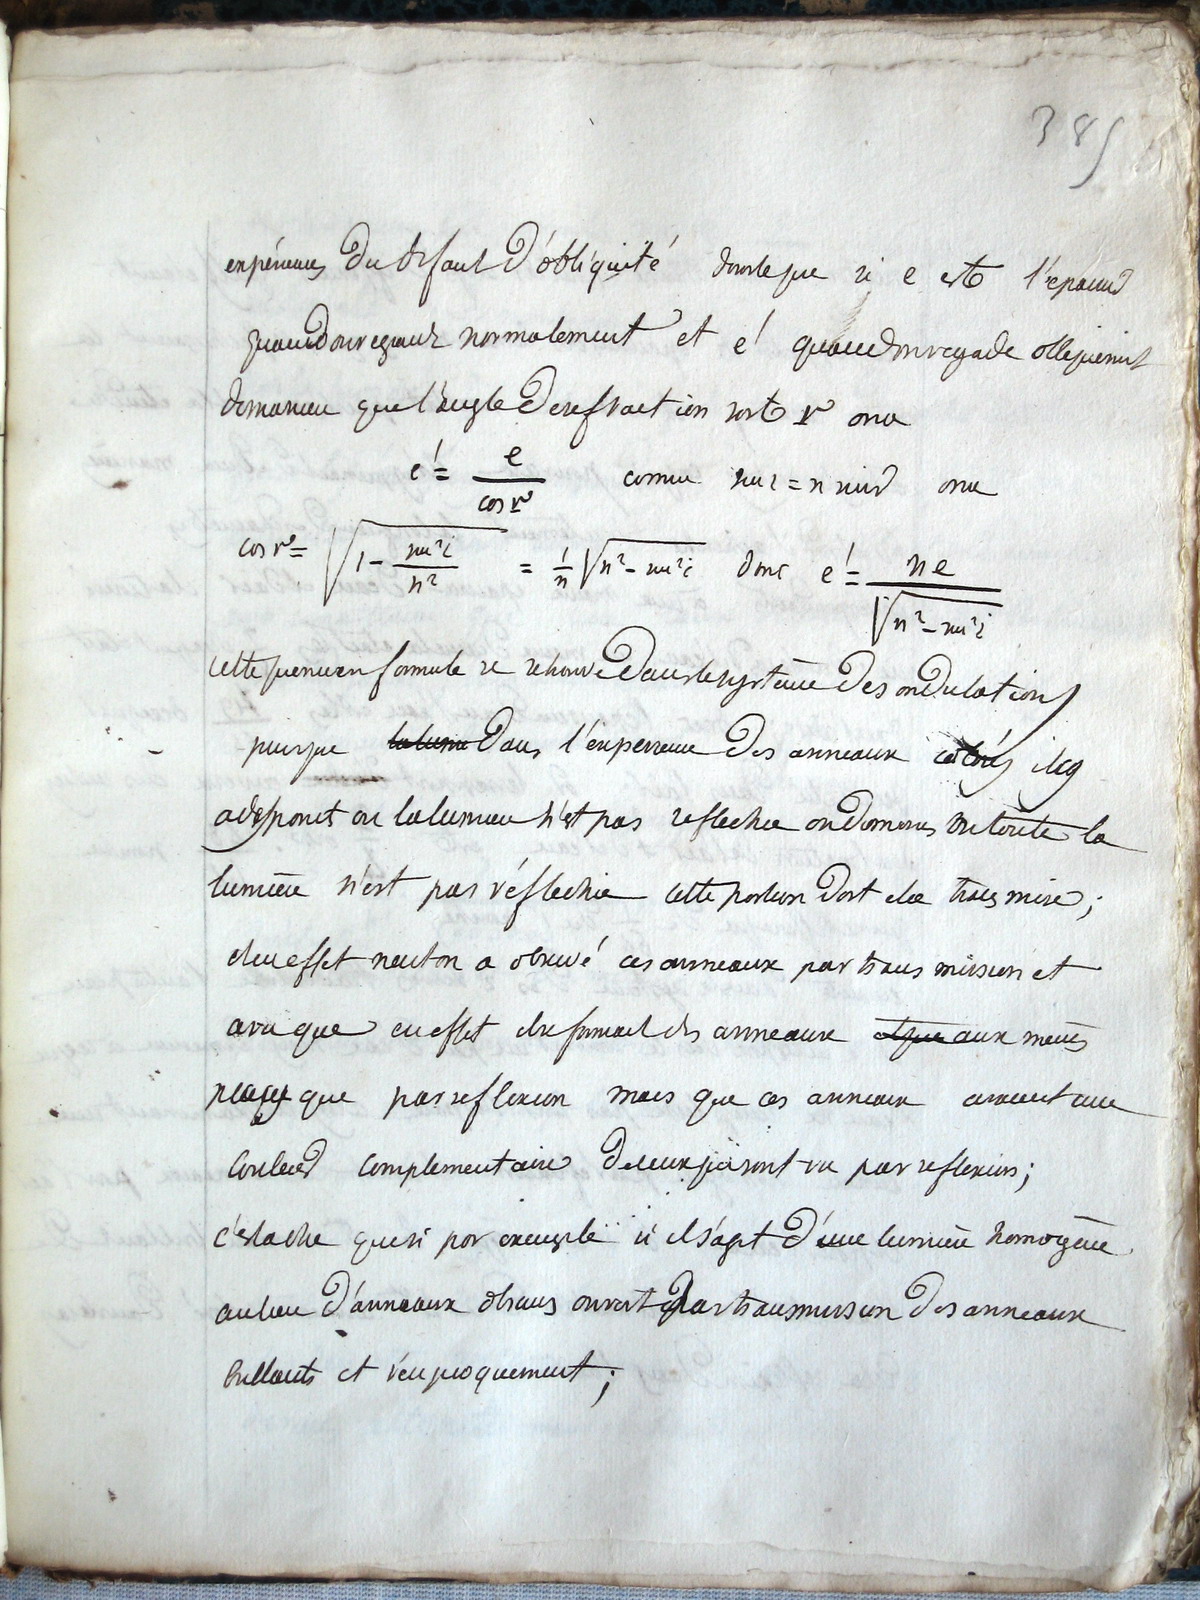 385
expériences du defaut d'obliquité de sorte que si e est l'epaisseur
quand on regarde normalement et e' quand on regarde obliquement
de maniere que l'angle de refraction soit r on a
e' = e / cos r comme sin i = n sin r on a
cos r = √(1 - sin²i / n²) = 1/n √(n² - sin²i) donc e' = n e / √(n² - sin²i)
cette formule se retrouve dans le systême des ondulations
puisque dans l'experience des anneaux il y
a des points ou la lumiere n'est pas reflechie ou du moins ou toute la
lumière n'est pas réfléchie cette portion doit etre transmise ;
et en effet neuton a observé ces anneaux par transmission et
a vu que en effet il se formait des anneaux aux memes
places que par reflexion mais que ces anneaux avaient une
couleur complementaire de ceux qui sont vu par reflexion ;
c'est a dire que si par exemple il s'agit d'une lumière homogène
au lieu d'anneaux obscurs on voit par transmission des anneaux
brillants et réciproquement ;